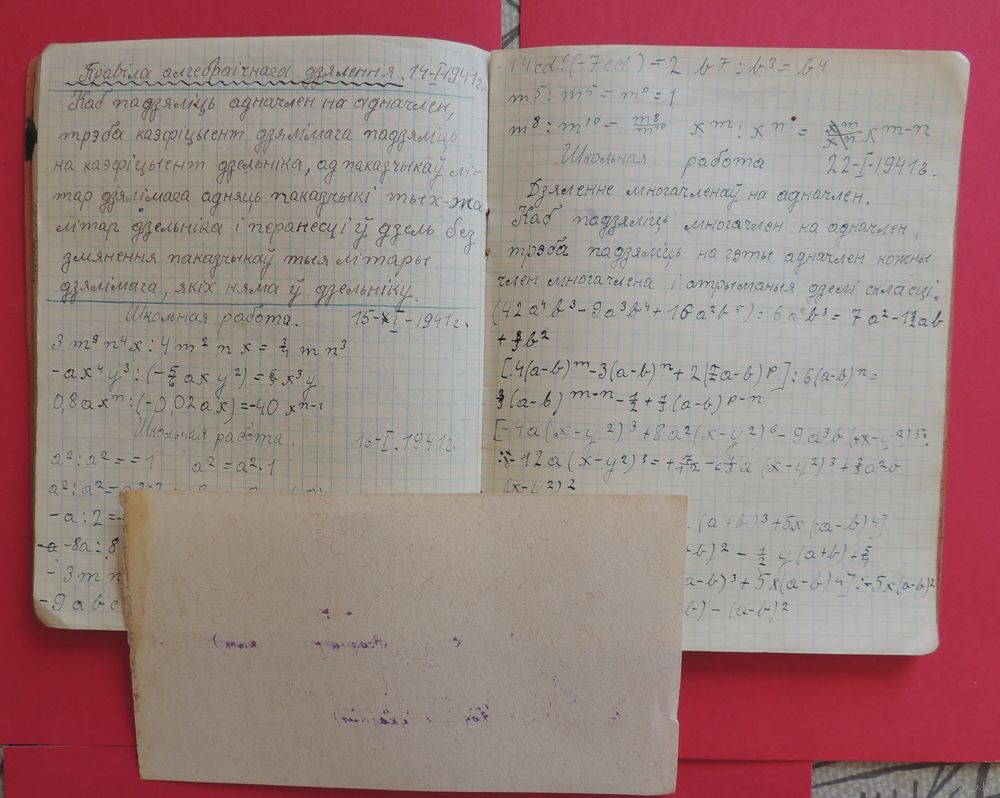 Правіла алгебраічнага дзялення. 14-I-1941г.
Каб падзяліць адначлен на адначлен,
трэба каэфіцыент дзялімага падзяліць
на каэфіцыент дзельніка, ад паказчыкаў лі=
тар дзялімага адняць паказчыкі тых-жа
літар дзельніка і перанесці ў дзель без
змянення паказчыкаў тыя літары
дзялімага, якіх няма ў дзельніку.
Школьная работа. 15-I-1941г.
3m³n⁴x : 4m²nx = ¾ mn³
-ax⁴y³ : (-⅚axy²) = 6/5 x³y
0,8axⁿ : (-0,02ax) = -40 xⁿ⁻¹
Школьная работа. 16-I.1941г.
a² : a² = =1 a² = a²·1
a² : a² =
-a : 2 =
-8a : 8
-3mn
-9abc
-14cd : (-7cd) = 2 b⁷ : b³ = b⁴
m⁵ : m⁵ = m⁰ = 1
m⁸ : m¹⁰ = m⁸/m¹⁰ xᵐ : xⁿ = xᵐ⁻ⁿ
Школьная работа 22-I-1941г.
Дзяленне многачленаў на адначлен.
Каб падзяліць многачлен на адначлен,
трэба падзяліць на гэты адначлен кожны
член многачлена і атрыманыя дзелі скласці.
(42a⁴b³ - 9a³b⁴ + 16a²b⁵) : 6a²b³ = 7a² - 1½ab
+ 8/3 b²
[4(a-b)ᵐ - 3(a-b)ⁿ + 2(a-b)ᵖ] : 6(a-b)ⁿ =
⅔(a-b)ᵐ⁻ⁿ - ½ + ⅓(a-b)ᵖ⁻ⁿ
[-4a(x-y²)³ + 8a²(x-y²)⁶ - 9a³b(x-y²)⁵ :
: -12a(x-y²)³ = + a(x-y²)³ + ¾a²b
(x-y²)²
(a+b)³ + 5x(a-b)⁴]
b)² - ½ y(a+b) +
a-b)³ + 5x(a-b)⁴] : -5x(a-b)²
b) - (a-b)²